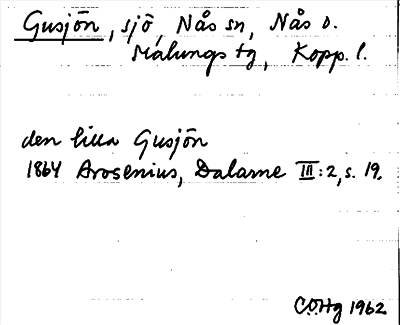 Gusjön, sjö, Nås sn, Nås o.
Malungs tg, Kopp. l.
den lilla Gusjön
1864 Arosenius, Dalarne III:2, s. 19.
C.O.Hg 1962